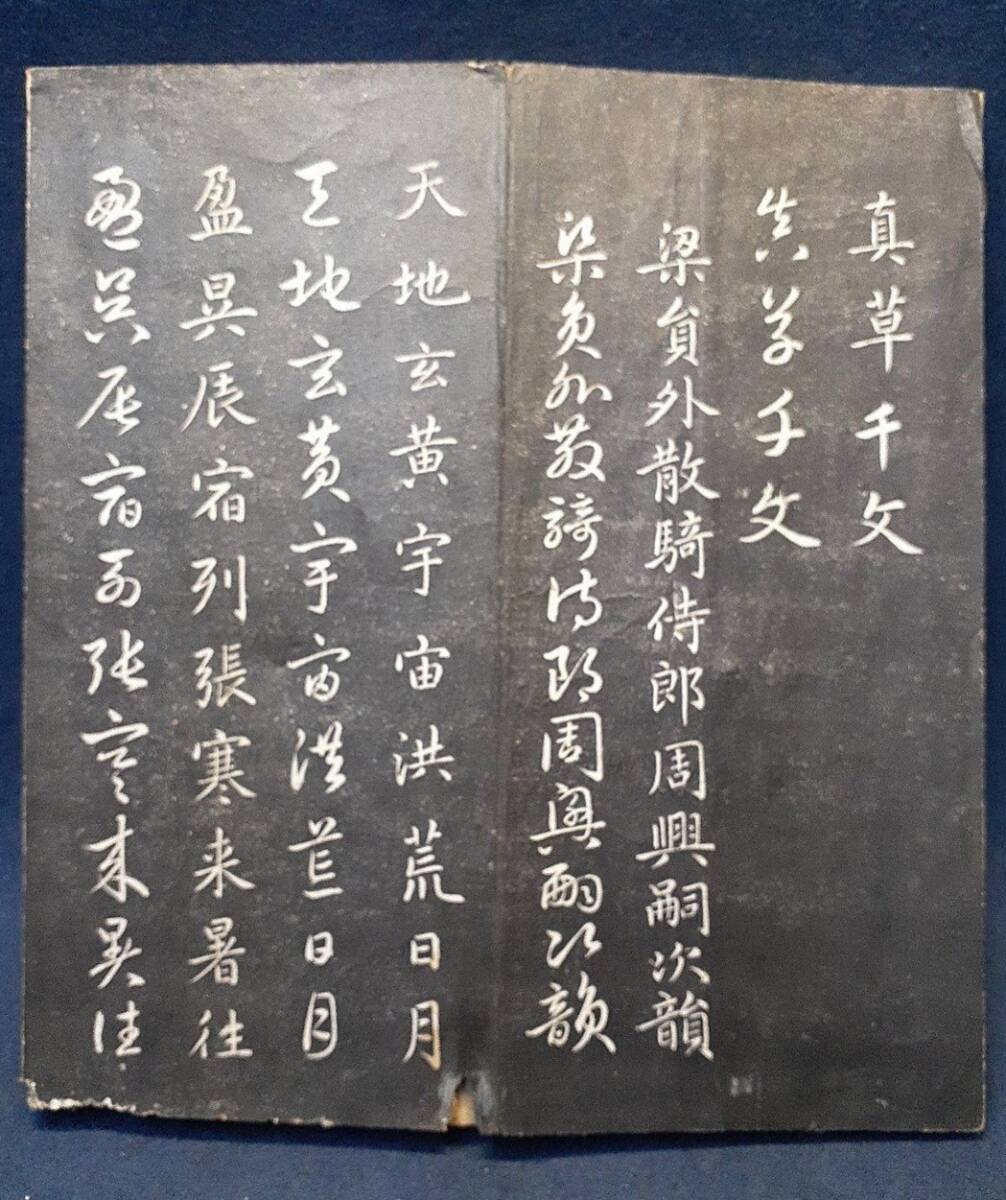 真草千文
真草千文
梁貟外散騎侍郎周興嗣次韻
梁貟外散騎侍郎周興嗣次韻
天地玄黄宇宙洪荒日月
天地玄黄宇宙洪荒日月
盈昃辰宿列張寒来暑往
盈昃辰宿列張寒来暑往